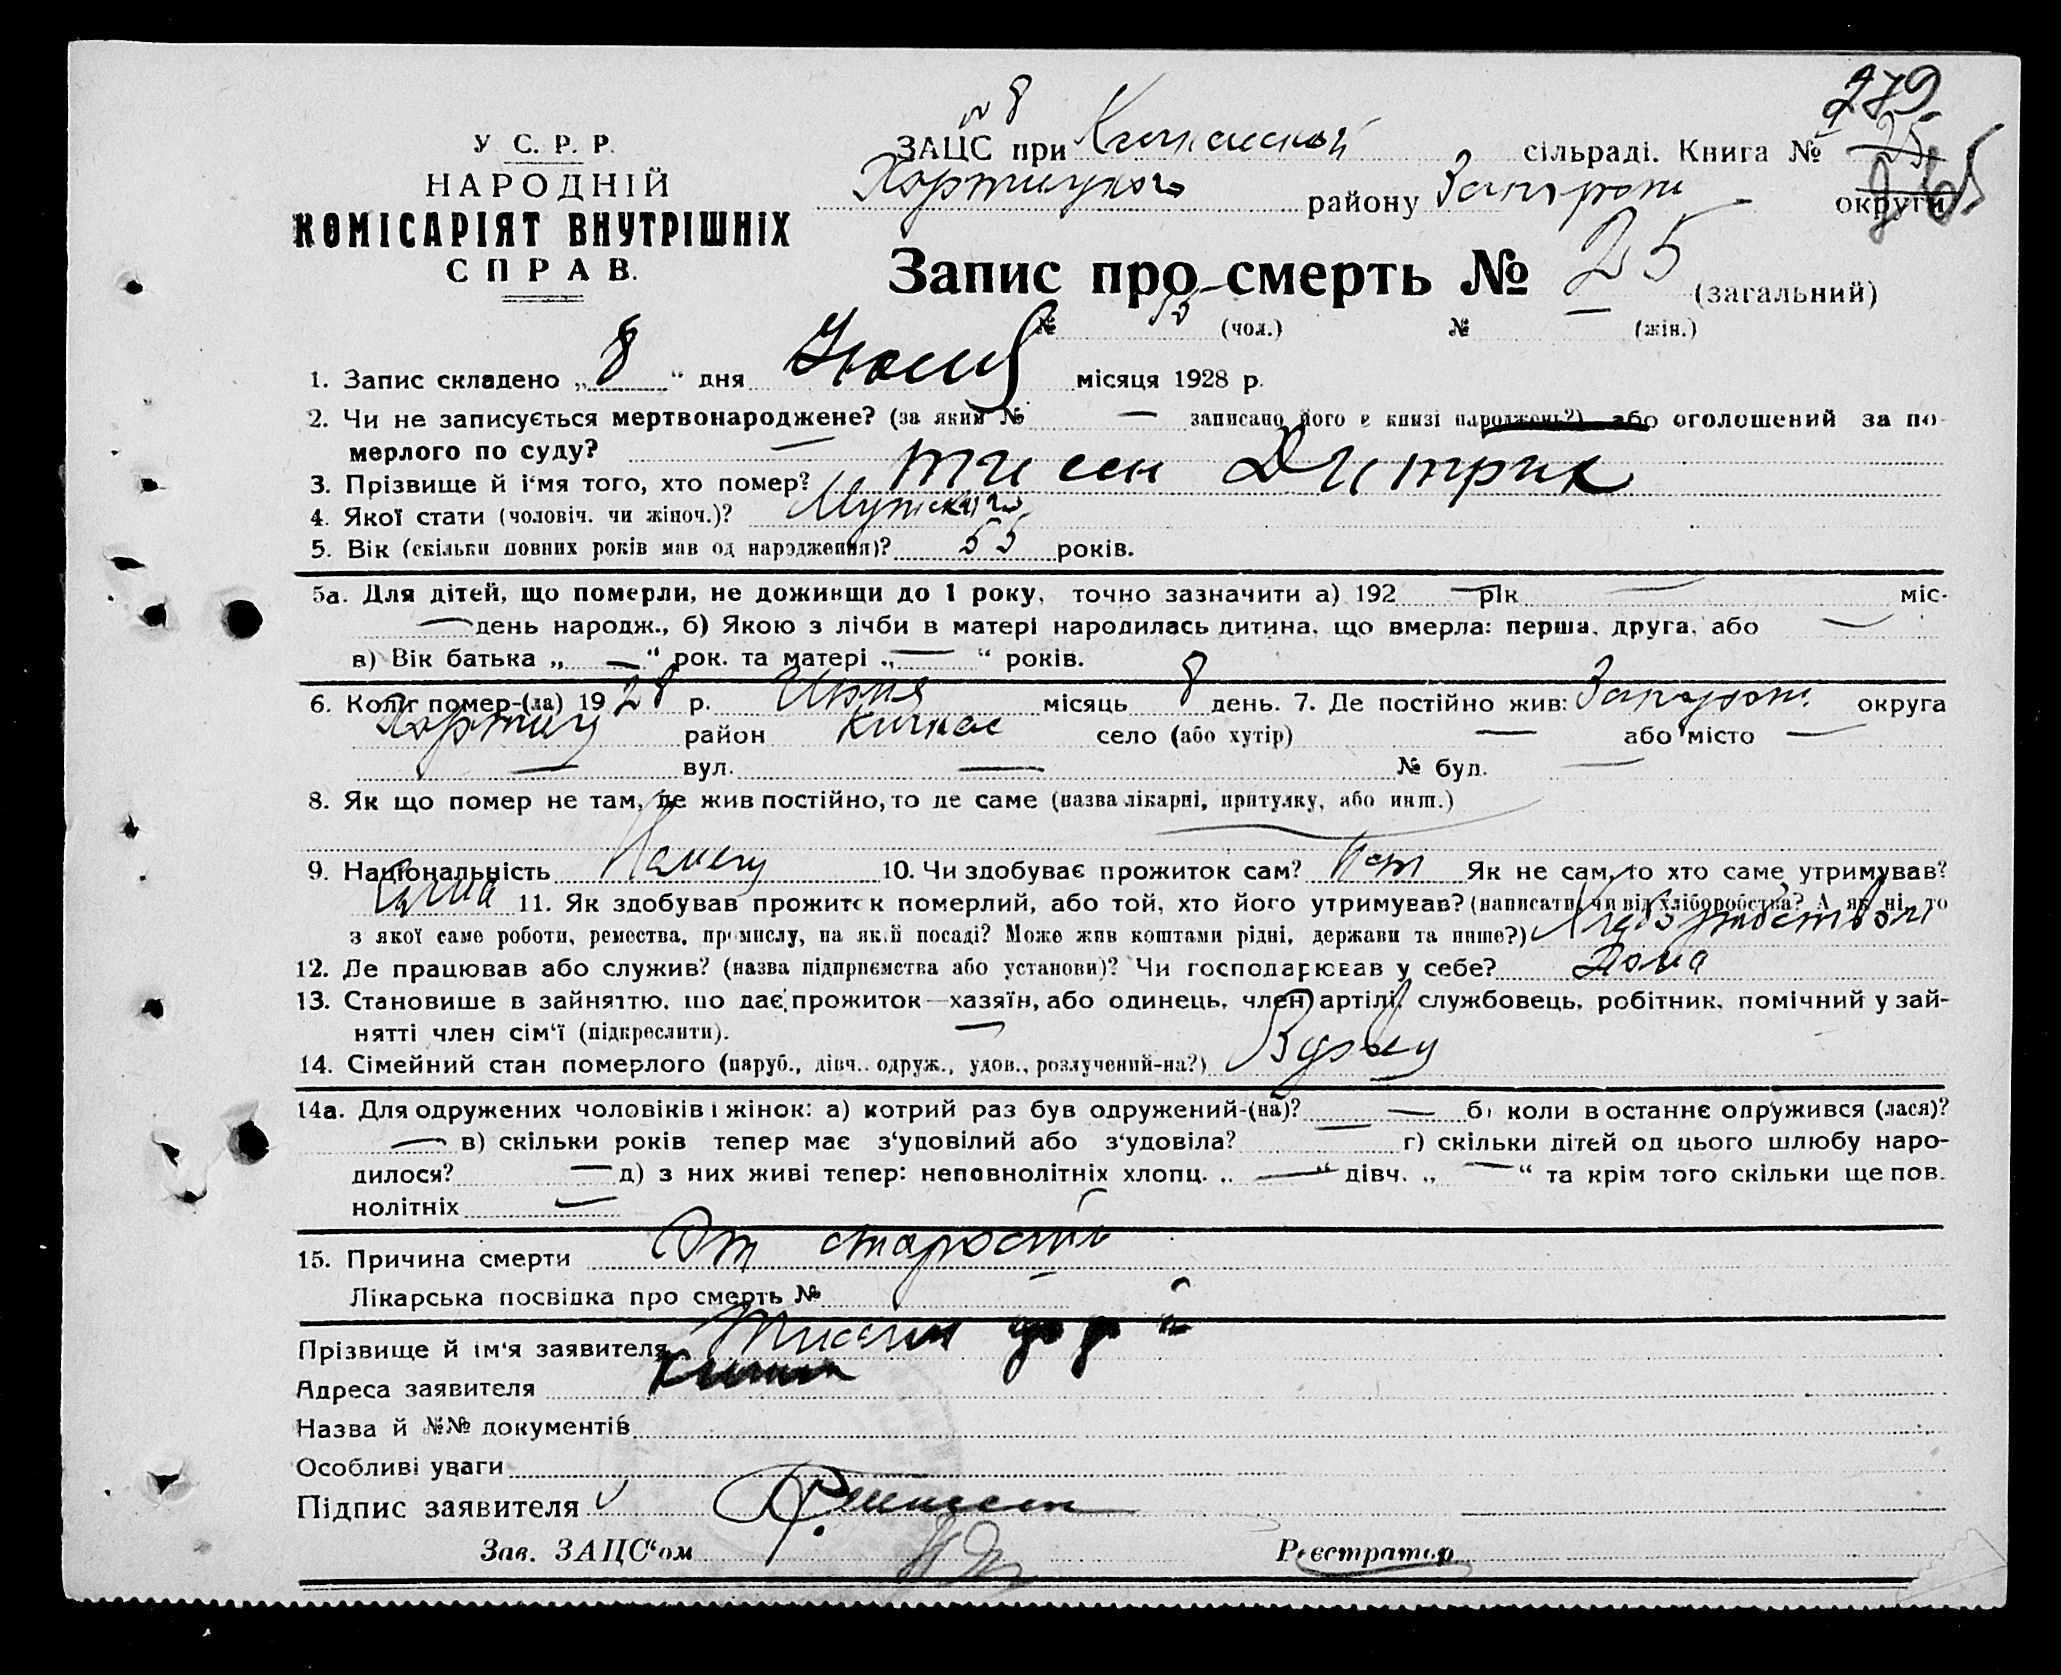 279
№ 8
У С. Р. Р.
НАРОДНІЙ
КОМІСАРІЯТ ВНУТРІШНІХ
СПРАВ.
ЗАЦС при Кичкаской сільраді. Книга № 25
Хортицкого району Запорож округи 265
Запис про смерть № 25 (загальний)
№ 15 (чол.) № — (жін.)
1. Запис складено „ 8 “ дня Июня місяця 1928 р.
2. Чи не записується мертвонароджене? (за яким № — записано його в книзі народжень?) або оголошений за по-
мерлого по суду? —
3. Прізвище й і'мя того, хто помер? Тисен Дитрик
4. Якої стати (чоловіч. чи жіноч.)? Мужского
5. Вік (скільки повних років мав од народження)? 55 років.
5а. Для дітей, що померли, не доживши до 1 року, точно зазначити а) 192 — рік — міс-
— день народж., б) Якою з лічби в матері народилась дитина, що вмерла: перша, друга, або —
в) Вік батька „ — “ рок. та матері „ — “ років.
6. Коли помер-(ла) 1928 р. Июня місяць 8 день. 7. Де постійно жив: Запорож. округа
Хортиц район Кичкас село (або хутір) — або місто —
— вул. — № буд. —
8. Як що помер не там, де жив постійно, то де саме (назва лікарні, притулку, або инш.)
—
9. Національність Немец 10. Чи здобуває прожиток сам? Нет Як не сам, то хто саме утримував?
Сына 11. Як здобував прожиток померлий, або той, хто його утримував? (написати, чи від хліборобства? А як ні, то
з якої саме роботи, ремества, промислу, на якій посаді? Може жив коштами рідні, держави та инше?) Хлебопашеством
12. Де працював або служив? (назва підприємства або установи)? Чи господарював у себе? Дома
13. Становище в зайняттю, що дає прожиток—хазяїн, або одинець, член артілі, службовець, робітник, помічний у зай-
нятті член сім'ї (підкреслити). —
14. Сімейний стан померлого (паруб., дівч., одруж., удов., розлучений-на?) Вдовец
14а. Для одружених чоловіків і жінок: а) котрий раз був одружений-(на)? — б) коли в останнє одружився (лася)?
— в) скільки років тепер має з'удовілий або з'удовіла? — г) скільки дітей од цього шлюбу наро-
дилося? — д) з них живі тепер: неповнолітніх хлопц. „ — “ дівч. „ — “ та крім того скільки ще пов.
нолітніх —
15. Причина смерти От старости
Лікарська посвідка про смерть № —
Прізвище й ім'я заявителя Тиссен
Адреса заявителя Кичкас
Назва й №№ документів
Особливі уваги
Підпис заявителя
Зав. ЗАЦС'ом
Реєстратор